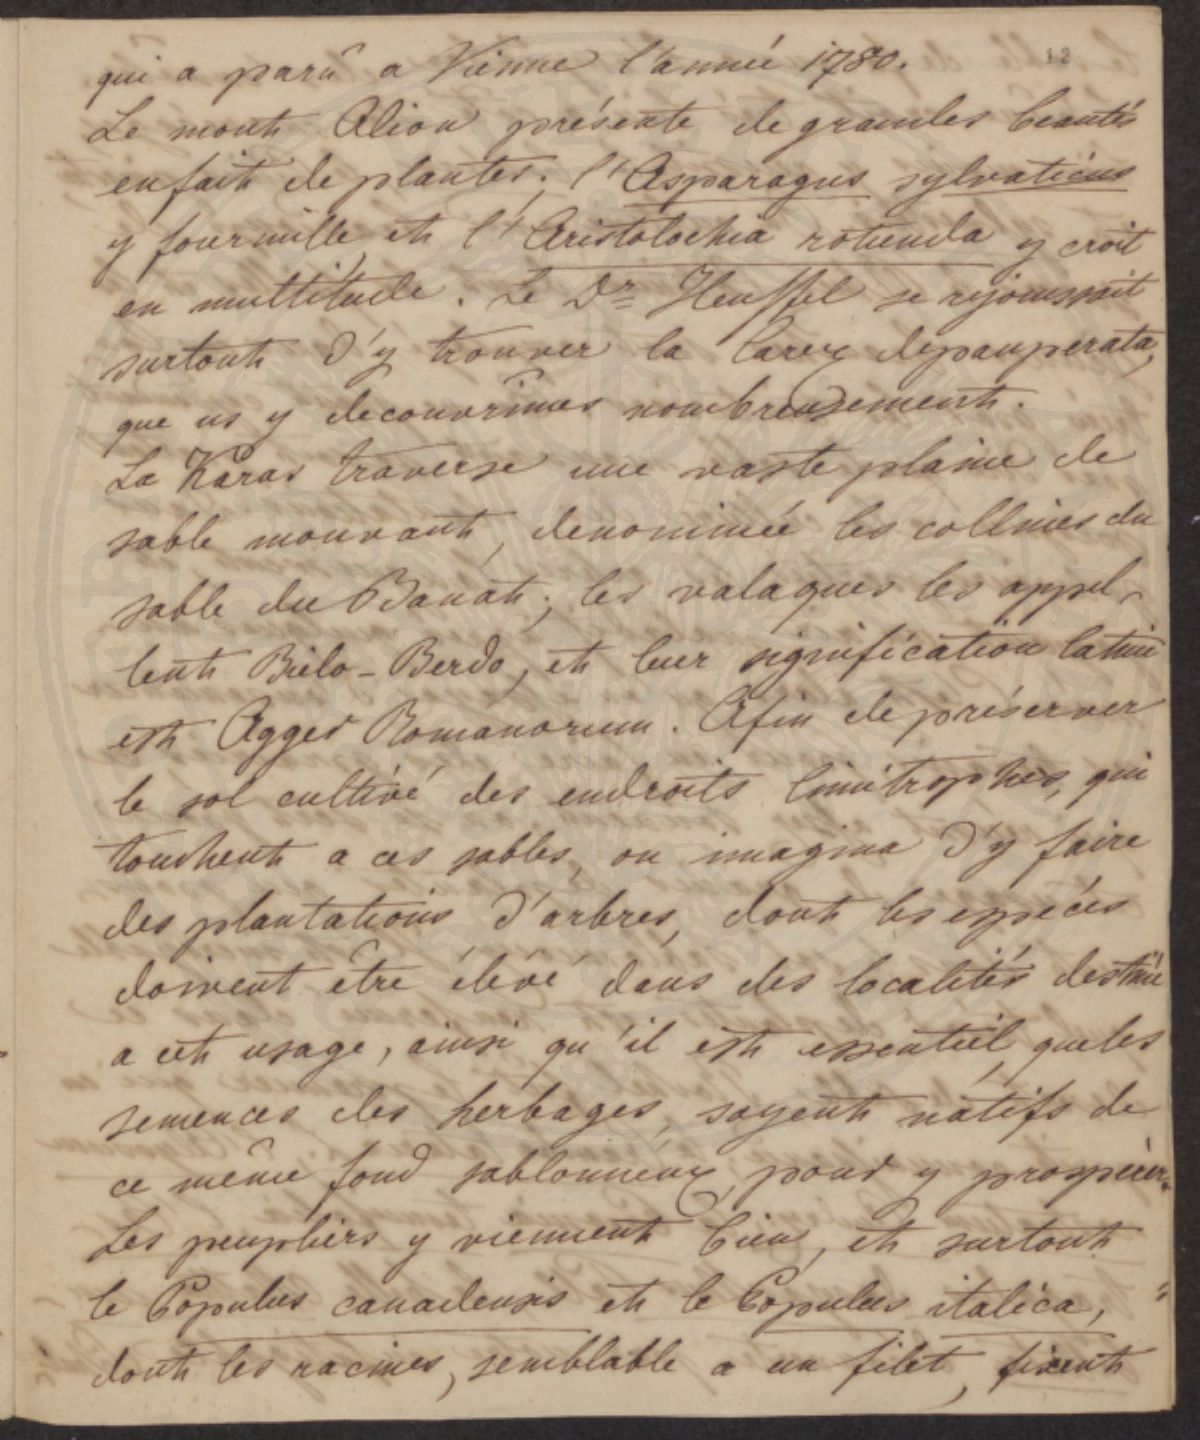 12
qui a parû a Vienne l'année 1780.
Le mont Alion présente de grandes beautés
en fait de plantes; l'Asparagus sylvaticus
y fourmille, et l'Aristolochia rotunda y croit
en multitude. Le Dr Heuffel se rejouissait
surtout d'y trouver la Carex depauperata,
que ns y decouvrîmes nombreusement.
La Karas traverse une vaste plaine de
sable mouvant, denonimée les collines du
sable du Banat; les valaques les appel-
lent Bielo-Berdo, et leur signification latine
est Agger Romanorum. Afin de préserver
le sol cultivé des endroits limitrophes, qui
touchent a ces sables, on imagina d'y faire
des plantations d'arbres, dont les espéces
doivent être élevé dans des localités destiné
a cet usage, ainsi qu'il est essentiel, que les
semences des herbages, soyent natifs de
ce même fond sablonneux, pour y prospérer.
Les peupliers y viennent bien, et surtout
le Populus canadensis et le Populus italica,
dont les racines, semblable a un filet, fixent